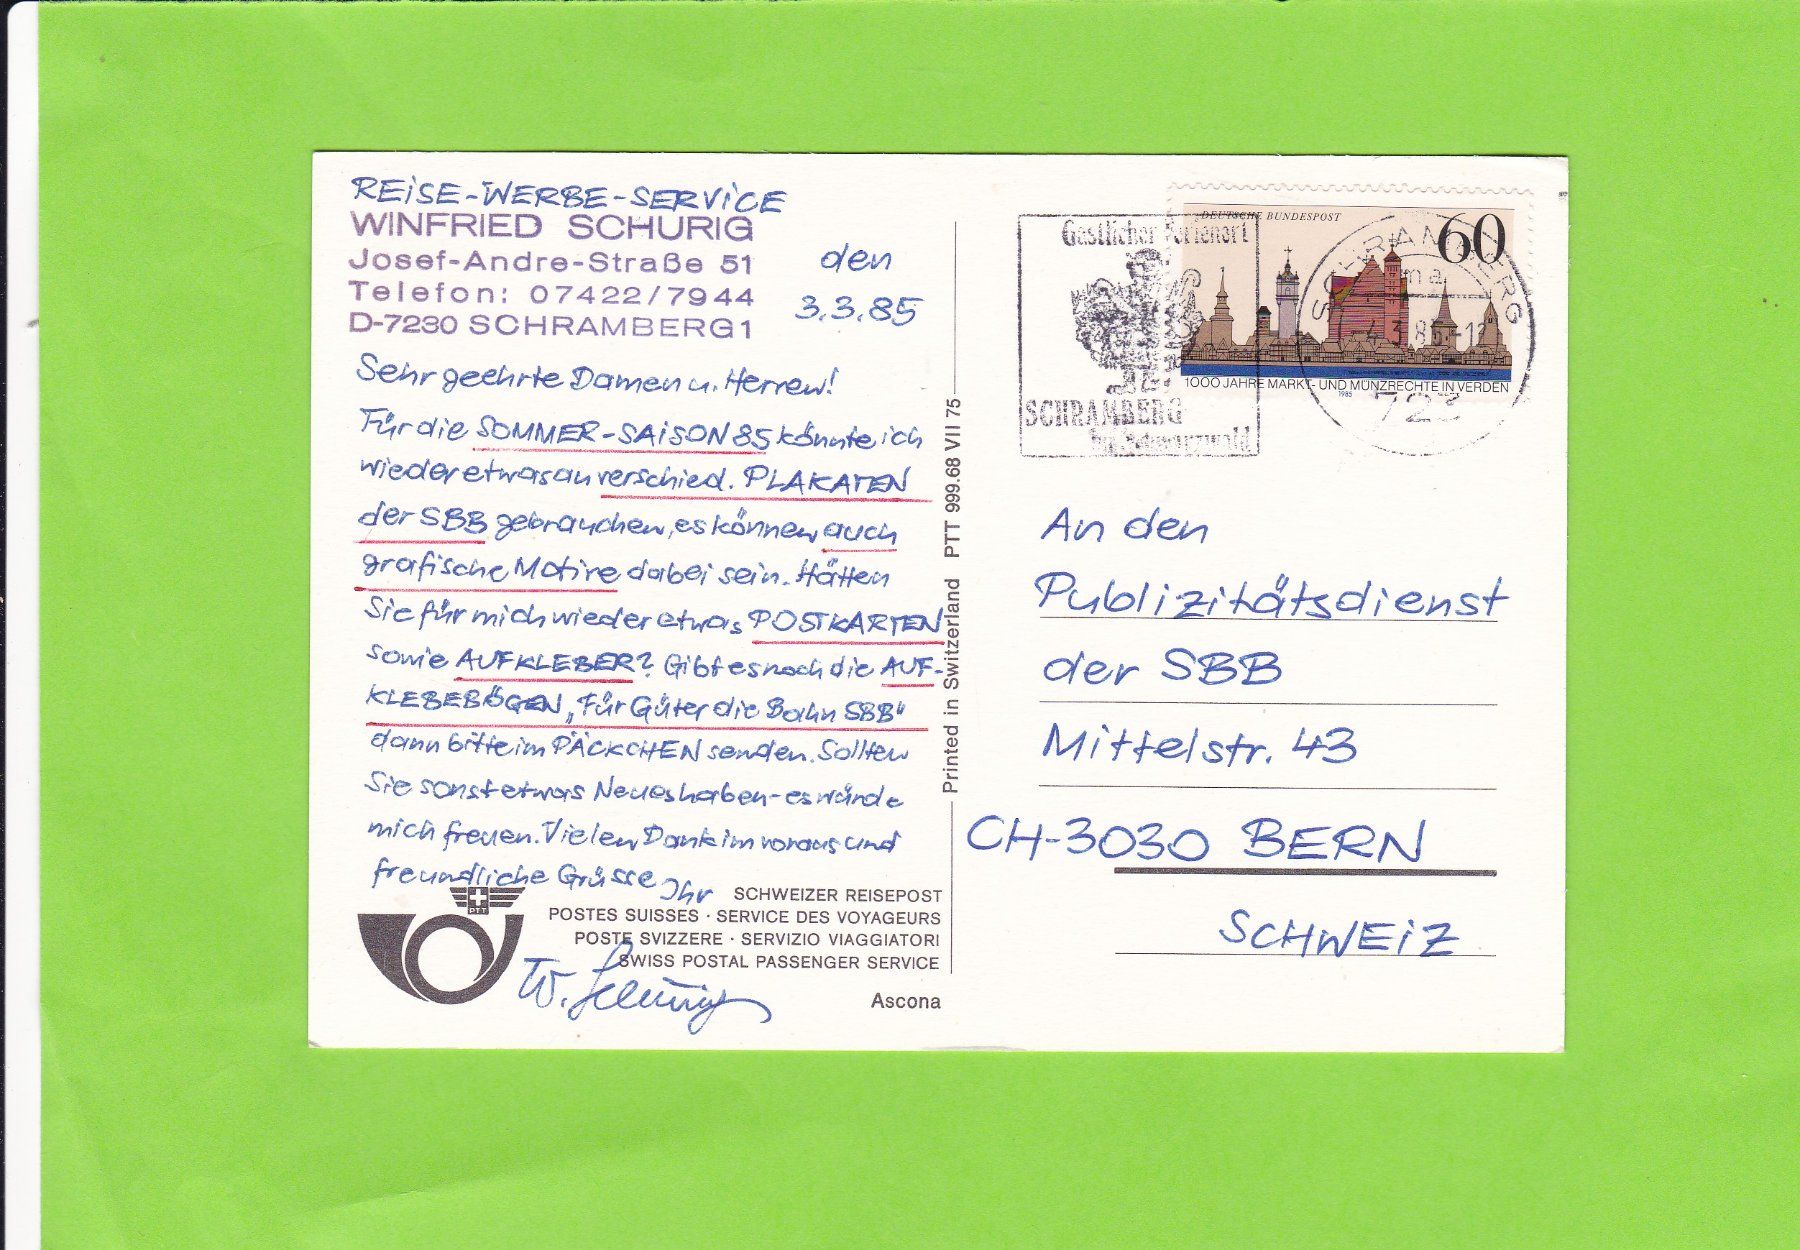 REiSE-WERBE-SERViCE
WINFRIED SCHURIG
Josef-Andre-Straße 51
Telefon: 07422/7944
D-7230 SCHRAMBERG 1
den
3.3.85
Sehr geehrte Damen u. Herren!
Für die SOMMER-SAiSON 85 könnte ich
wieder etwas an verschied. PLAKATEN
der SBB gebrauchen, es können auch
grafische Motive dabei sein. Hätten
Sie für mich wieder etwas POSTKARTEN
sowie AUFKLEBER? Gibt es noch die AUF-
KLEBEBÖGEN „Für Güter die Bahn SBB"
dann bitte im PÄCKCHEN senden. Sollten
Sie sonst etwas Neues haben - es würde
mich freuen. Vielen Dank im voraus und
freundliche Grüsse Ihr
W. Schurig
PTT
SCHWEIZER REISEPOST
POSTES SUISSES · SERVICE DES VOYAGEURS
POSTE SVIZZERE · SERVIZIO VIAGGIATORI
SWISS POSTAL PASSENGER SERVICE
Ascona
Printed in Switzerland PTT 999.68 VII 75
Gastlicher Ferienort
SCHRAMBERG
im Schwarzwald
DEUTSCHE BUNDESPOST
60
1000 JAHRE MARKT- UND MÜNZRECHTE IN VERDEN
1985
SCHRAMBERG
ma
4.3.85-12
722
An den
Publizitätsdienst
der SBB
Mittelstr. 43
CH-3030 BERN
SCHWEiZ